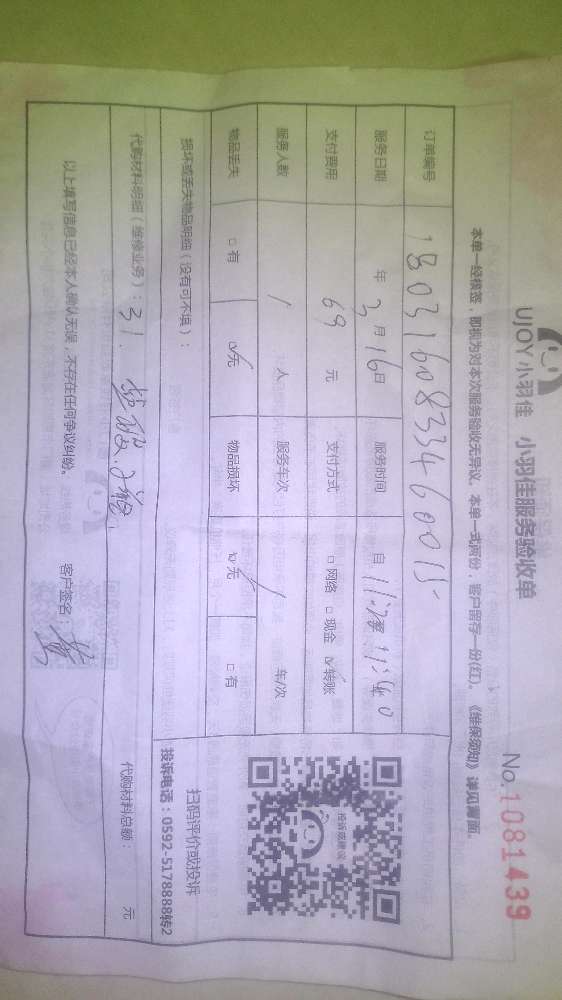 UJOY 小羽佳 小羽佳服务验收单
No.1081439
本单一经核签，即视为对本次服务验收无异议，本单一式两份，客户留存一份(红)。《维保须知》详见背面。
订单编号 1803160833460015
服务日期 年 3 月 16 日 服务时间 自
支付费用 69 元 支付方式 □ 网络 □ 现金 ☑ 转账
服务人数 1 人 服务车次 1 车/次
物品丢失 □ 有 ☑ 无 物品损坏 ☑ 无 □ 有
扫码评价或投诉
投诉电话：0592-5178888转2
损坏或丢失物品明细（没有可不填）：
代购材料明细（维修业务）：31. 代购材料总额： 元
以上填写信息已经本人确认无误，不存在任何争议纠纷。 客户签名：